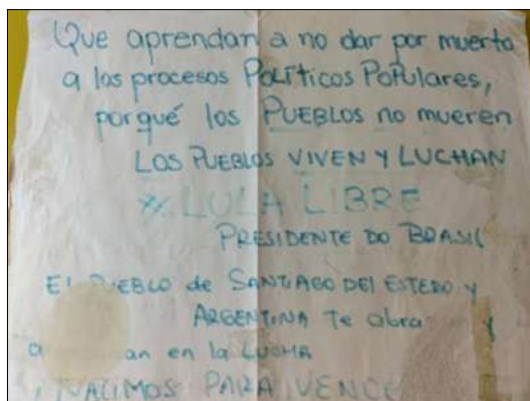 Que aprendan a no dar por muerto
a los procesos Políticos Populares,
porqué los PUEBLOS no mueren
LOS PUEBLOS VIVEN Y LUCHAN
LULA LIBRE
PRESIDENTE DO BRASIL
El PUEBLO de SANTIAGO DEL ESTERO y
ARGENTINA Te y
en la LUCHA
PARA